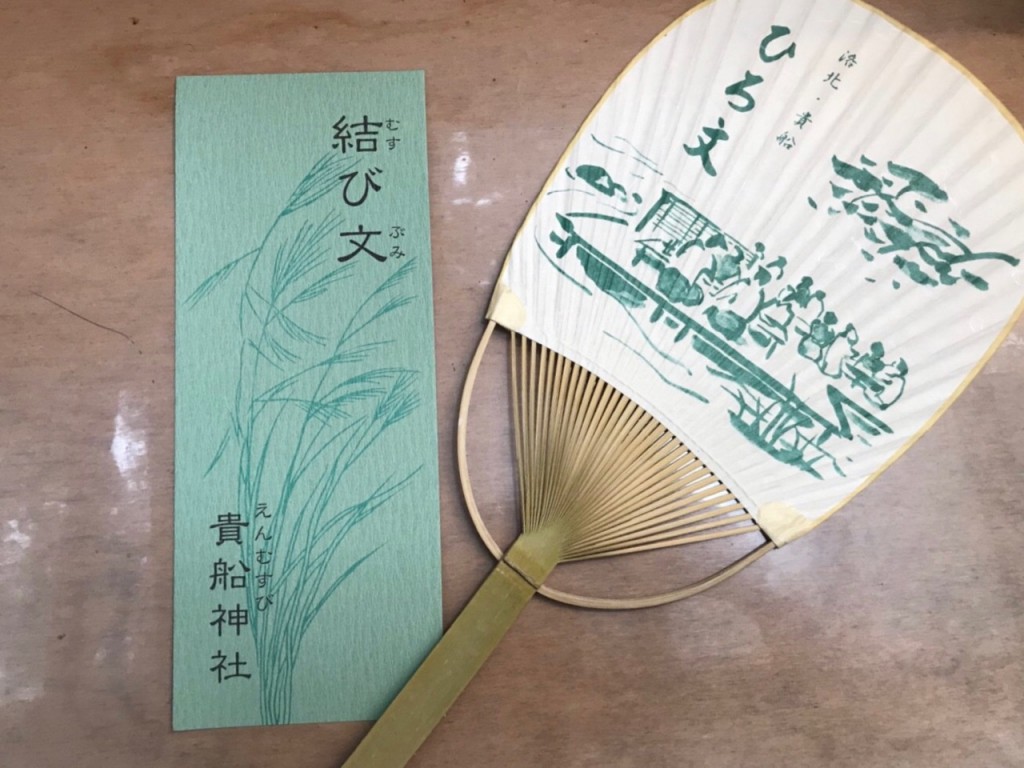 結び文
むす
ぶみ
えんむすび
貴船神社
洛北・貴船
ひろ文